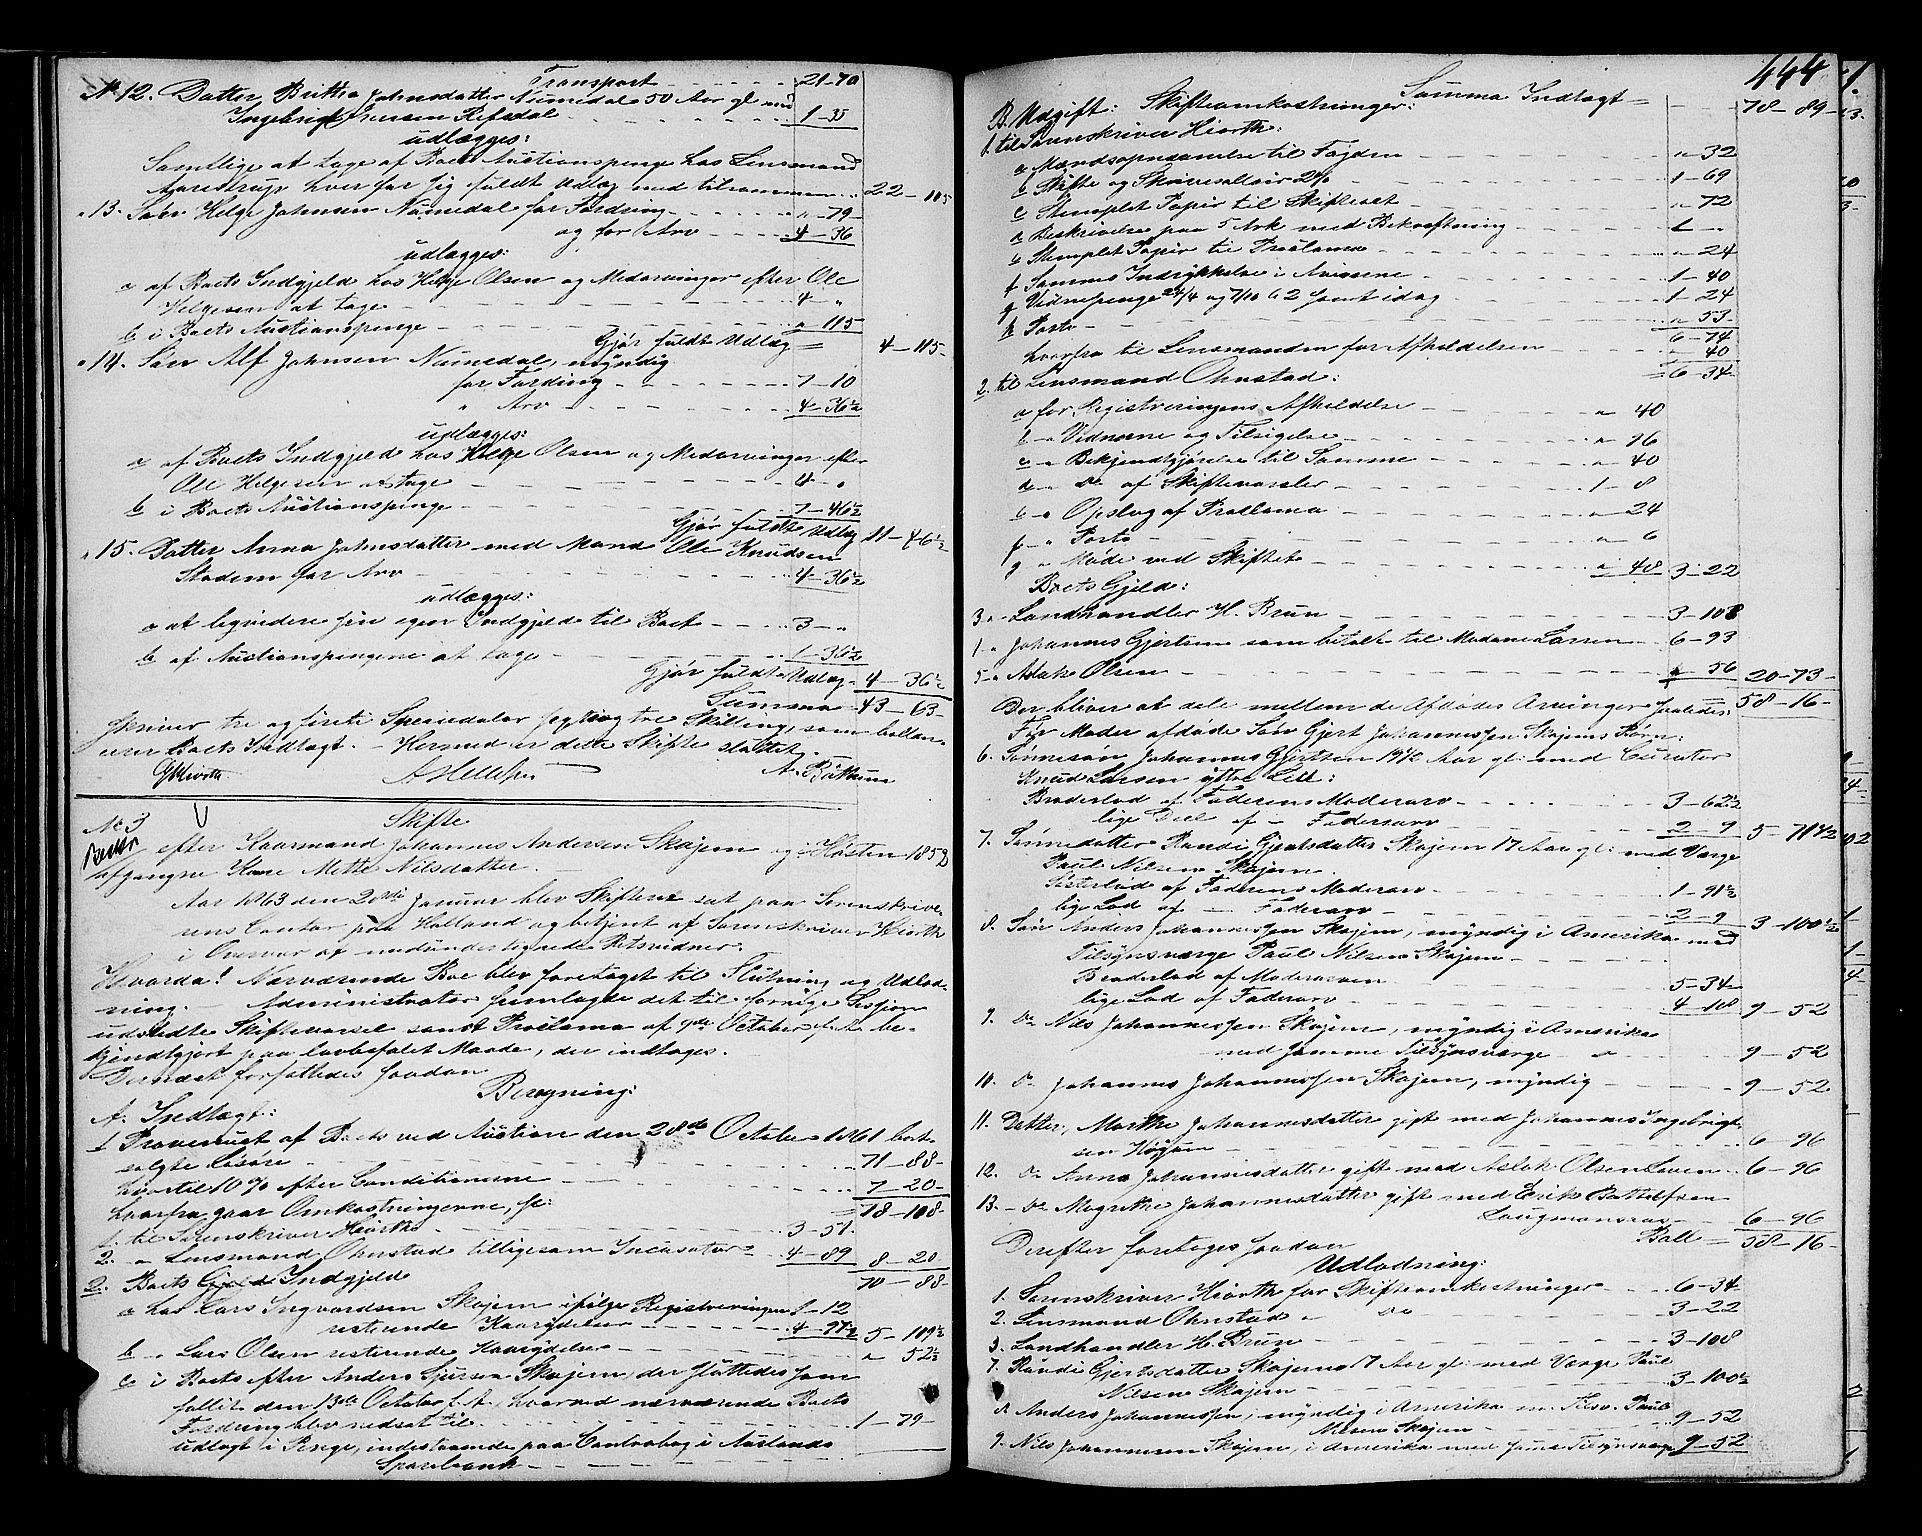 Transport 21-70
№ 12. Datter Brithe Johnsdatter Numedal 50 Aar gl med
Ingebrigt Iversen Refsdal 1-35
udlægges:
Samtlige at tage af Boets Auctionspenge hos Lensmand
Aarestrup hver for sig fuldt Udlæg med tilsammen 22-105
" 13. Søn Helge Johnsen Numedal for Fordring " 79-
og for Arv 4-36
udlægges:
a af Boets Indgjeld hos Helge Olsen og Medarvinger efter Ole
Helgesen at tage 4-"
b i Boets Auctionspenge " 115
Gjør fuldt Udlæg = 4-115-
" 14. Søn Alf Johnsen Numedal, myndig
for Fordring 7-10
" Arv 4-36½
udlægges:
a af Boets Indgjeld hos Helge Olsen og Medarvinger efter
Ole Helgesen at tage 4-"
b i Boets Auctionspenge 7-46½
Gjør fuldt Udlæg 11-46½
" 15. Datter Anna Johnsdatter med Mand Ole Knudsen
Stadem for Arv 4-36½
udlægges:
a at liqvidere sin egen Indgjeld til Boet 3-"
b af Auctionspengene at tage 1-36½
Gjør fuldt Udlæg 4-36½
Summa 43-63-
skriver tre og fireti Speciedaler segtiogtre Skilling, som ballan-
cerer Boets Indtægt. – Hermed er dette Skifte sluttet.
GHiorth
№ 3
Skifte
efter Kaarmand Johannes Andersen Skajem og i Høsten 1852
afgangne Kone Mette Nilsdatter.
Aar 1863 den 20de Januar blev Skifteret sat paa Sorenskrive-
rens Contor paa Holland og betjent af Sorenskriver Hiorth
i Overvær af medundertegnede Retsvidner.
Hvorda! Nærværende Boe blev foretaget til Slutning og Udlod-
ning. Administrator fremlagde det til forrige Session
udstedte Skiftevarsel samt Proclama af 9de October f. A. be-
kjendtgjort paa lovbefalet Maade, der indtages.
Dernæst forfattedes saadan
Beregning:
A. Indtægt:
1 Provenuet af Boets ved Auction den 28de October 1861 bort-
solgte Løsøre 71-88-
hvortil 10% efter Conditionerne 7-20-
hvorfra gaar Omkostningerne, = 78-108-
1. til Sorenskriver Hiorth 3-51-
2. " Lensmand Ohnstad tilligesom Incasator 4-89 8-20
70-88-
2. Boets Indgjeld
a hos Lars Ingvardsen Skajem ifølge Registreringen 1-12
resterende Kaarydelser 4-97½ 5-109½
b " Lars Olsen resterende Kaarydelse " 52½
c i Boets efter Anders Sjursen Skajem, der sluttedes som
fallit den 13de October f. A., hvorved nærværende Boets
Fordring blev nedsat til 1-79-
udlagt i Penge, indestaaende paa Contrabog i Aurlands
Sparebank

444
Summa Indtægt = 78-89-
B. Udgift: Skifteomkostninger:
1. til Sorenskriver Hiorth:
a Mændsopnævnelse til Fogden " 32
b Skifte og Skriversallair 2% 1-69
c Stemplet Papir til Skifteret " 72
d Beskrivelse paa 5 Ark med Bekræftning 1-"
e Stemplet Papir til Proclama " 24
f Sammes Indrykkelse i Aviserne 1-40
g Vidnepenge 24/4 og 7/10 62 samt idag 1-24
h Porto " 53-
6-74
hvorfra til Lensmanden for Afholdelsen " 40
= 6-34-
2. til Lensmand Ohnstad:
a for Registreringens Afholdelse " 40
b " Vidnerne og Tilsigelse " 76
c " Bekjendtgjørelse til Samme " 40
d " do af Skiftevarsler 1-8
e " Opslag af Proclama " 24
f " Porto " 6
g " Møde ved Skiftet " 48 3-22
Boets Gjeld:
3 " Landhandler H. Brun 3-108
" Johannes Gjertsen som betalt til Madame Larsen 6-93
5 " Aslak Olsen " 56 20-73-
Der bliver at dele mellem de Afdødes Arvinger saaledes: 58-16-
Før Moder afdøde Søn Gjert Johannessen Skajems Børn:
6. Sønnesøn Johannes Gjertsen 19½ Aar gl: med Curator
Knud Larsen ytre Lie:
Broderlod af Faderens Moderarv 3-62½
lige Deel af " Faderarv 2-9 5-71½
7. Sønnedatter Randi Gjertsdatter Skajem 17 Aar gl: med Værge
Paul Nilsen Skajem.
Søsterlod af Faderens Moderarv 1-91½
lige Lod af " Faderarv 2-9 3-100½
8. Søn Anders Johannessen Skajem, myndig i Amerika med
Tilsynsværge Paul Nilsen Skajem
Broderlod af Moderarven 5-34-
lige Lod af Faderarv 4-18 9-52
9. do Nils Johannessen Skajem, myndig i Amerika
med samme Tilsynsværge 9-52
10. do Johannes Johannessen Skajem, myndig 9-52
11. Datter, Marthe Johannesdatter gift med Johannes Ingebrigt-
sen Høgum 6-96
12. do Anna Johannesdatter gift med Aslak Olsen Loven 6-96
13. do Magrethe Johannesdatter gift med Erik Botholfsen
Laugmansrøs 6-96
Ball = 58-16-
Derefter foretoges saadan
Udlodning:
1. Sorenskriver Hiorth for Skifteomkostninger 6-34-
2. Lensmand Ohnstad " do 3-22
3. Landhandler H. Brun 3-108
7. Randi Gjertsdatter Skajem 17 Aar gl: med Værge Paul
Nilsen Skajem 3-100½
8 Anders Johannessen, myndig i Amerika m. Tilsv. Paul
Nilsen Skajem 9-52
9. Nils Johannesen Skajem, i Amerika med samme Tilsynsværge 9-52